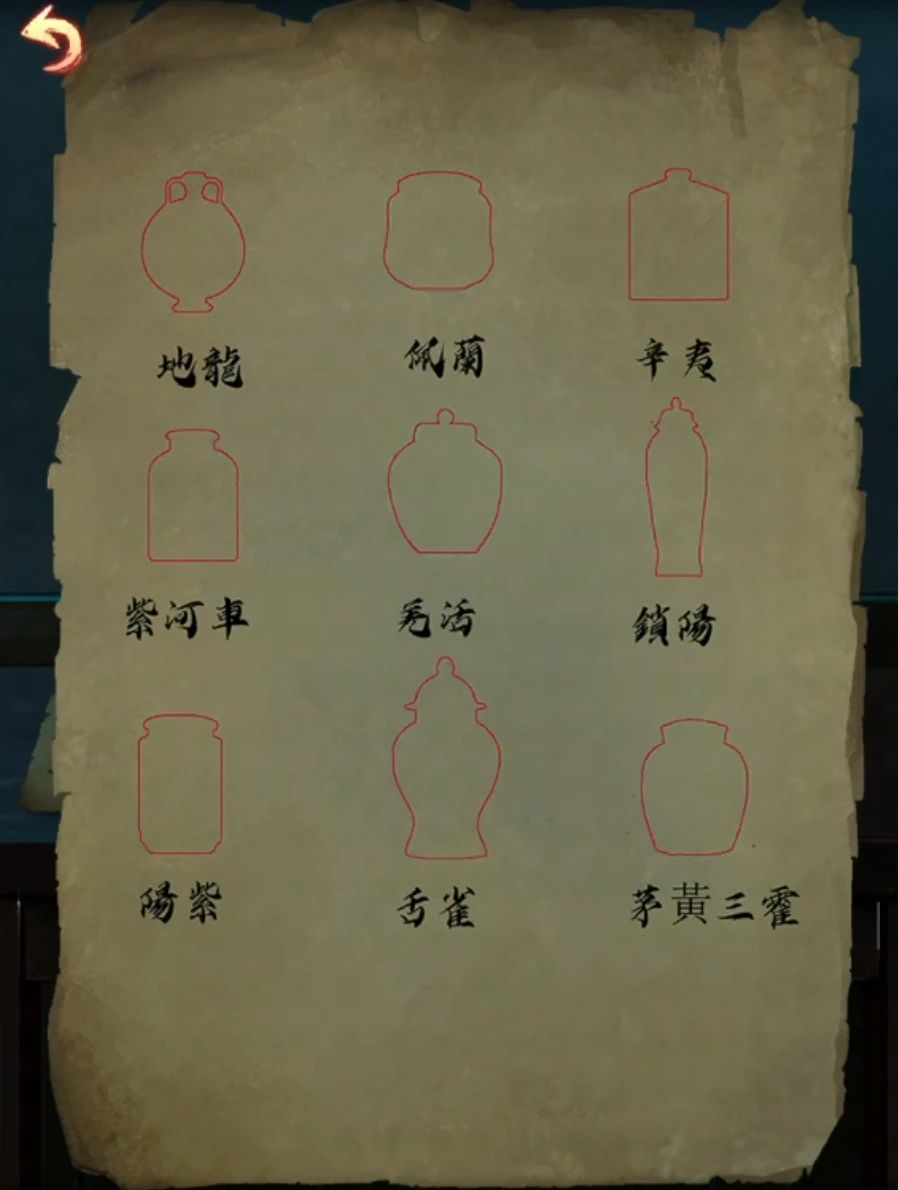 地龍 佩蘭 辛夷
紫河車 羌活 鎖陽
陽紫 舌雀 茅黃三霍